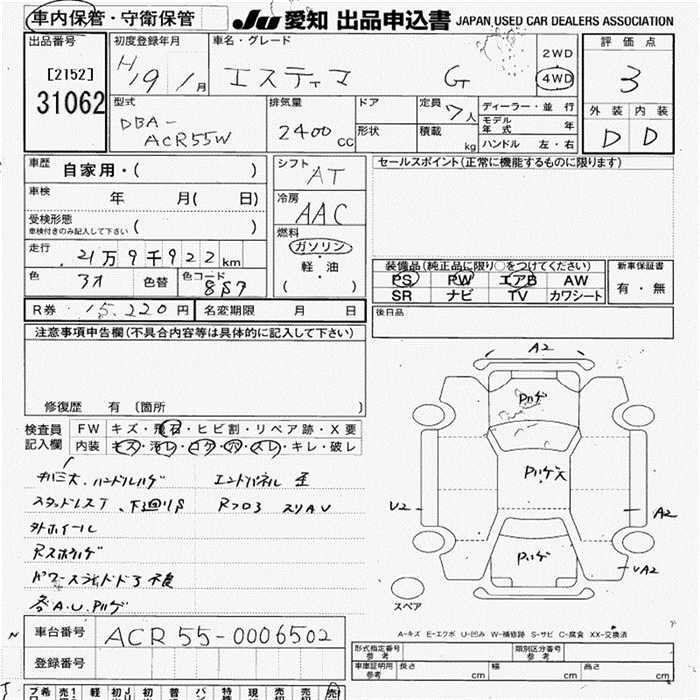 車内保管・守衛保管
JU 愛知 出品申込書 JAPAN USED CAR DEALERS ASSOCIATION
出品番号 初度登録年月 車名・グレード 評価点
[2152] H19年1月 エスティマ G 2WD 4WD 3
31062 型式 排気量 ドア 定員 7人 ディーラー・並行 外装 内装
DBA-ACR55W 2400cc 形状 積載 kg モデル年式 年 D D
ハンドル 左・右
車歴 自家用・( ) シフト AT セールスポイント(正常に機能するものに限ります)
車検 年 月( 日) 冷房 AAC
受検形態 車検付きのみ記入して下さい ( ) 燃料 ガソリン
走行 21万9千922km 軽・油
色 アオ 色替 色コード 8S7 ( )
装備品(純正品に限り○をつけてください) 新車保証書
PS PW エアB AW 有・無
SR ナビ TV カワシート
R券 15,220円 名変期限 月 日 後日品
注意事項申告欄(不具合内容等は具体的に記入して下さい)
修復歴 有 〔箇所 〕
検査員記入欄 FW キズ・飛石・ヒビ割・リペア跡・X要
内装 キズ・汚レ・コゲ・穴・スレ・キレ・破レ
A2
Pハゲ
Pハゲ大
Pハゲ
U2
A2
A2
スペア
ハンドルハゲ エンドパネル歪
スタッドレスT、下廻りS Rフロア スリAU
外ホイール
パワースライドドア不良
各A.U.Pハゲ
A-キズ E-エクボ U-凹み W-補修跡 S-サビ C-腐食 XX-交換済
車台番号 ACR55-0006502
登録番号
型式指定番号 参考 類別区分番号 参考
車庫証明用 参考 長さ cm 幅 cm 高さ cm